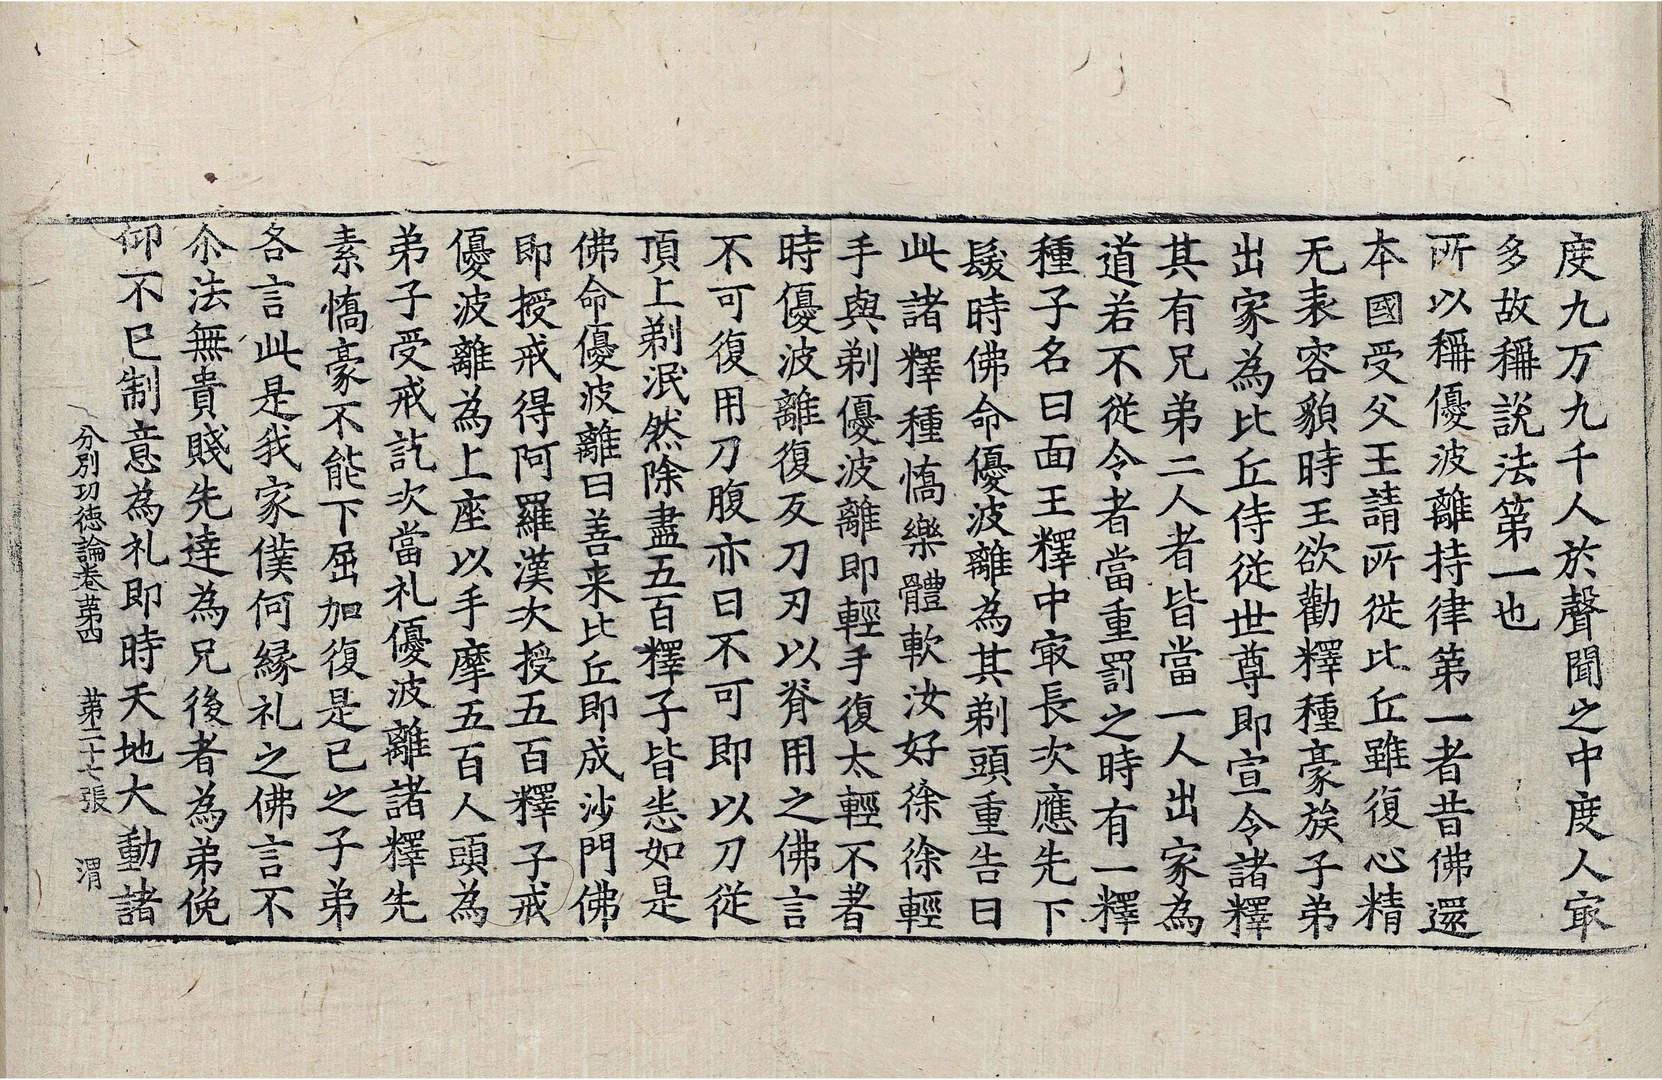 度九万九千人於聲聞之中度人㝡
多故稱説法第一也
所以稱優波離持律第一者昔佛還
本國受父王請所從比丘雖復心精
无表容貌時王欲勸釋種豪族子弟
出家為比丘侍從世尊即宣令諸釋
其有兄弟二人者皆當一人出家為
道若不從令者當重罰之時有一釋
種子名曰面王釋中㝡長次應先下
髮時佛命優波離為其剃頭重告曰
此諸釋種憍樂體軟汝好徐徐輕
手與剃優波離即輕手復太輕不著
時優波離復反刀刃以脊用之佛言
不可復用刀腹亦曰不可即以刀從
頂上剃泯然除盡五百釋子皆恚如是
佛命優波離曰善来比丘即成沙門佛
即授戒得阿羅漢次授五百釋子戒
優波離為上座以手摩五百人頭為
弟子受戒訖次當礼優波離諸釋先
素憍豪不能下屈加復是已之子弟
各言此是我家僕何緣礼之佛言不
尒法無貴賤先達為兄後者為弟俛
仰不已制意為礼即時天地大動諸
分別功徳論卷苐四 苐二十七張 渭